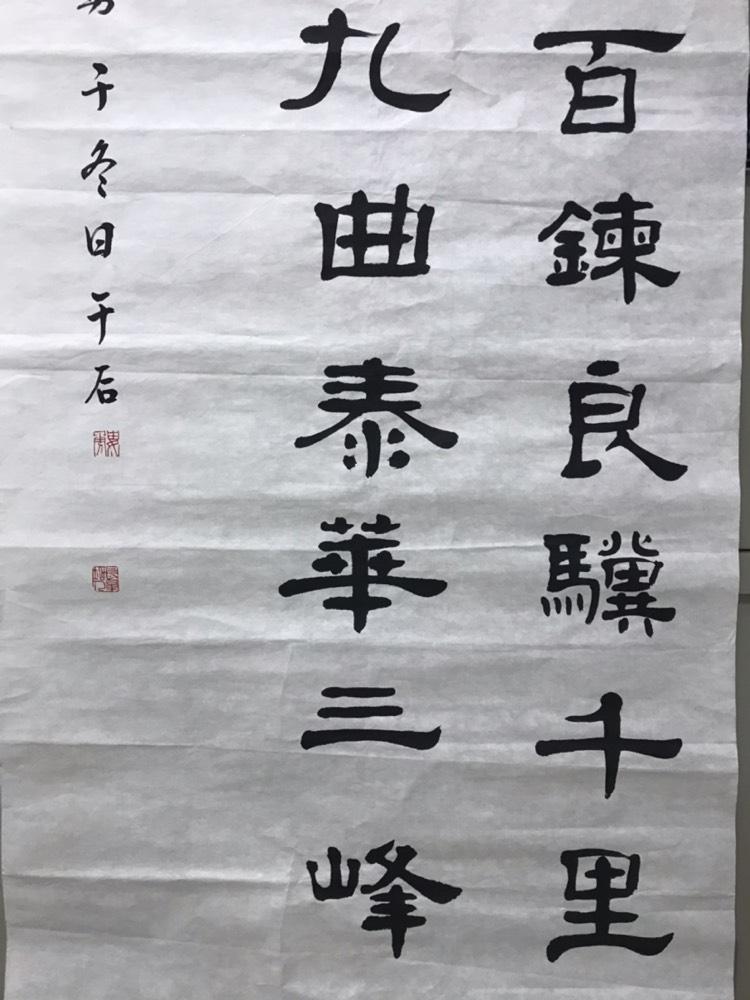 百鍊良驥千里
九曲泰華三峰
冬日石